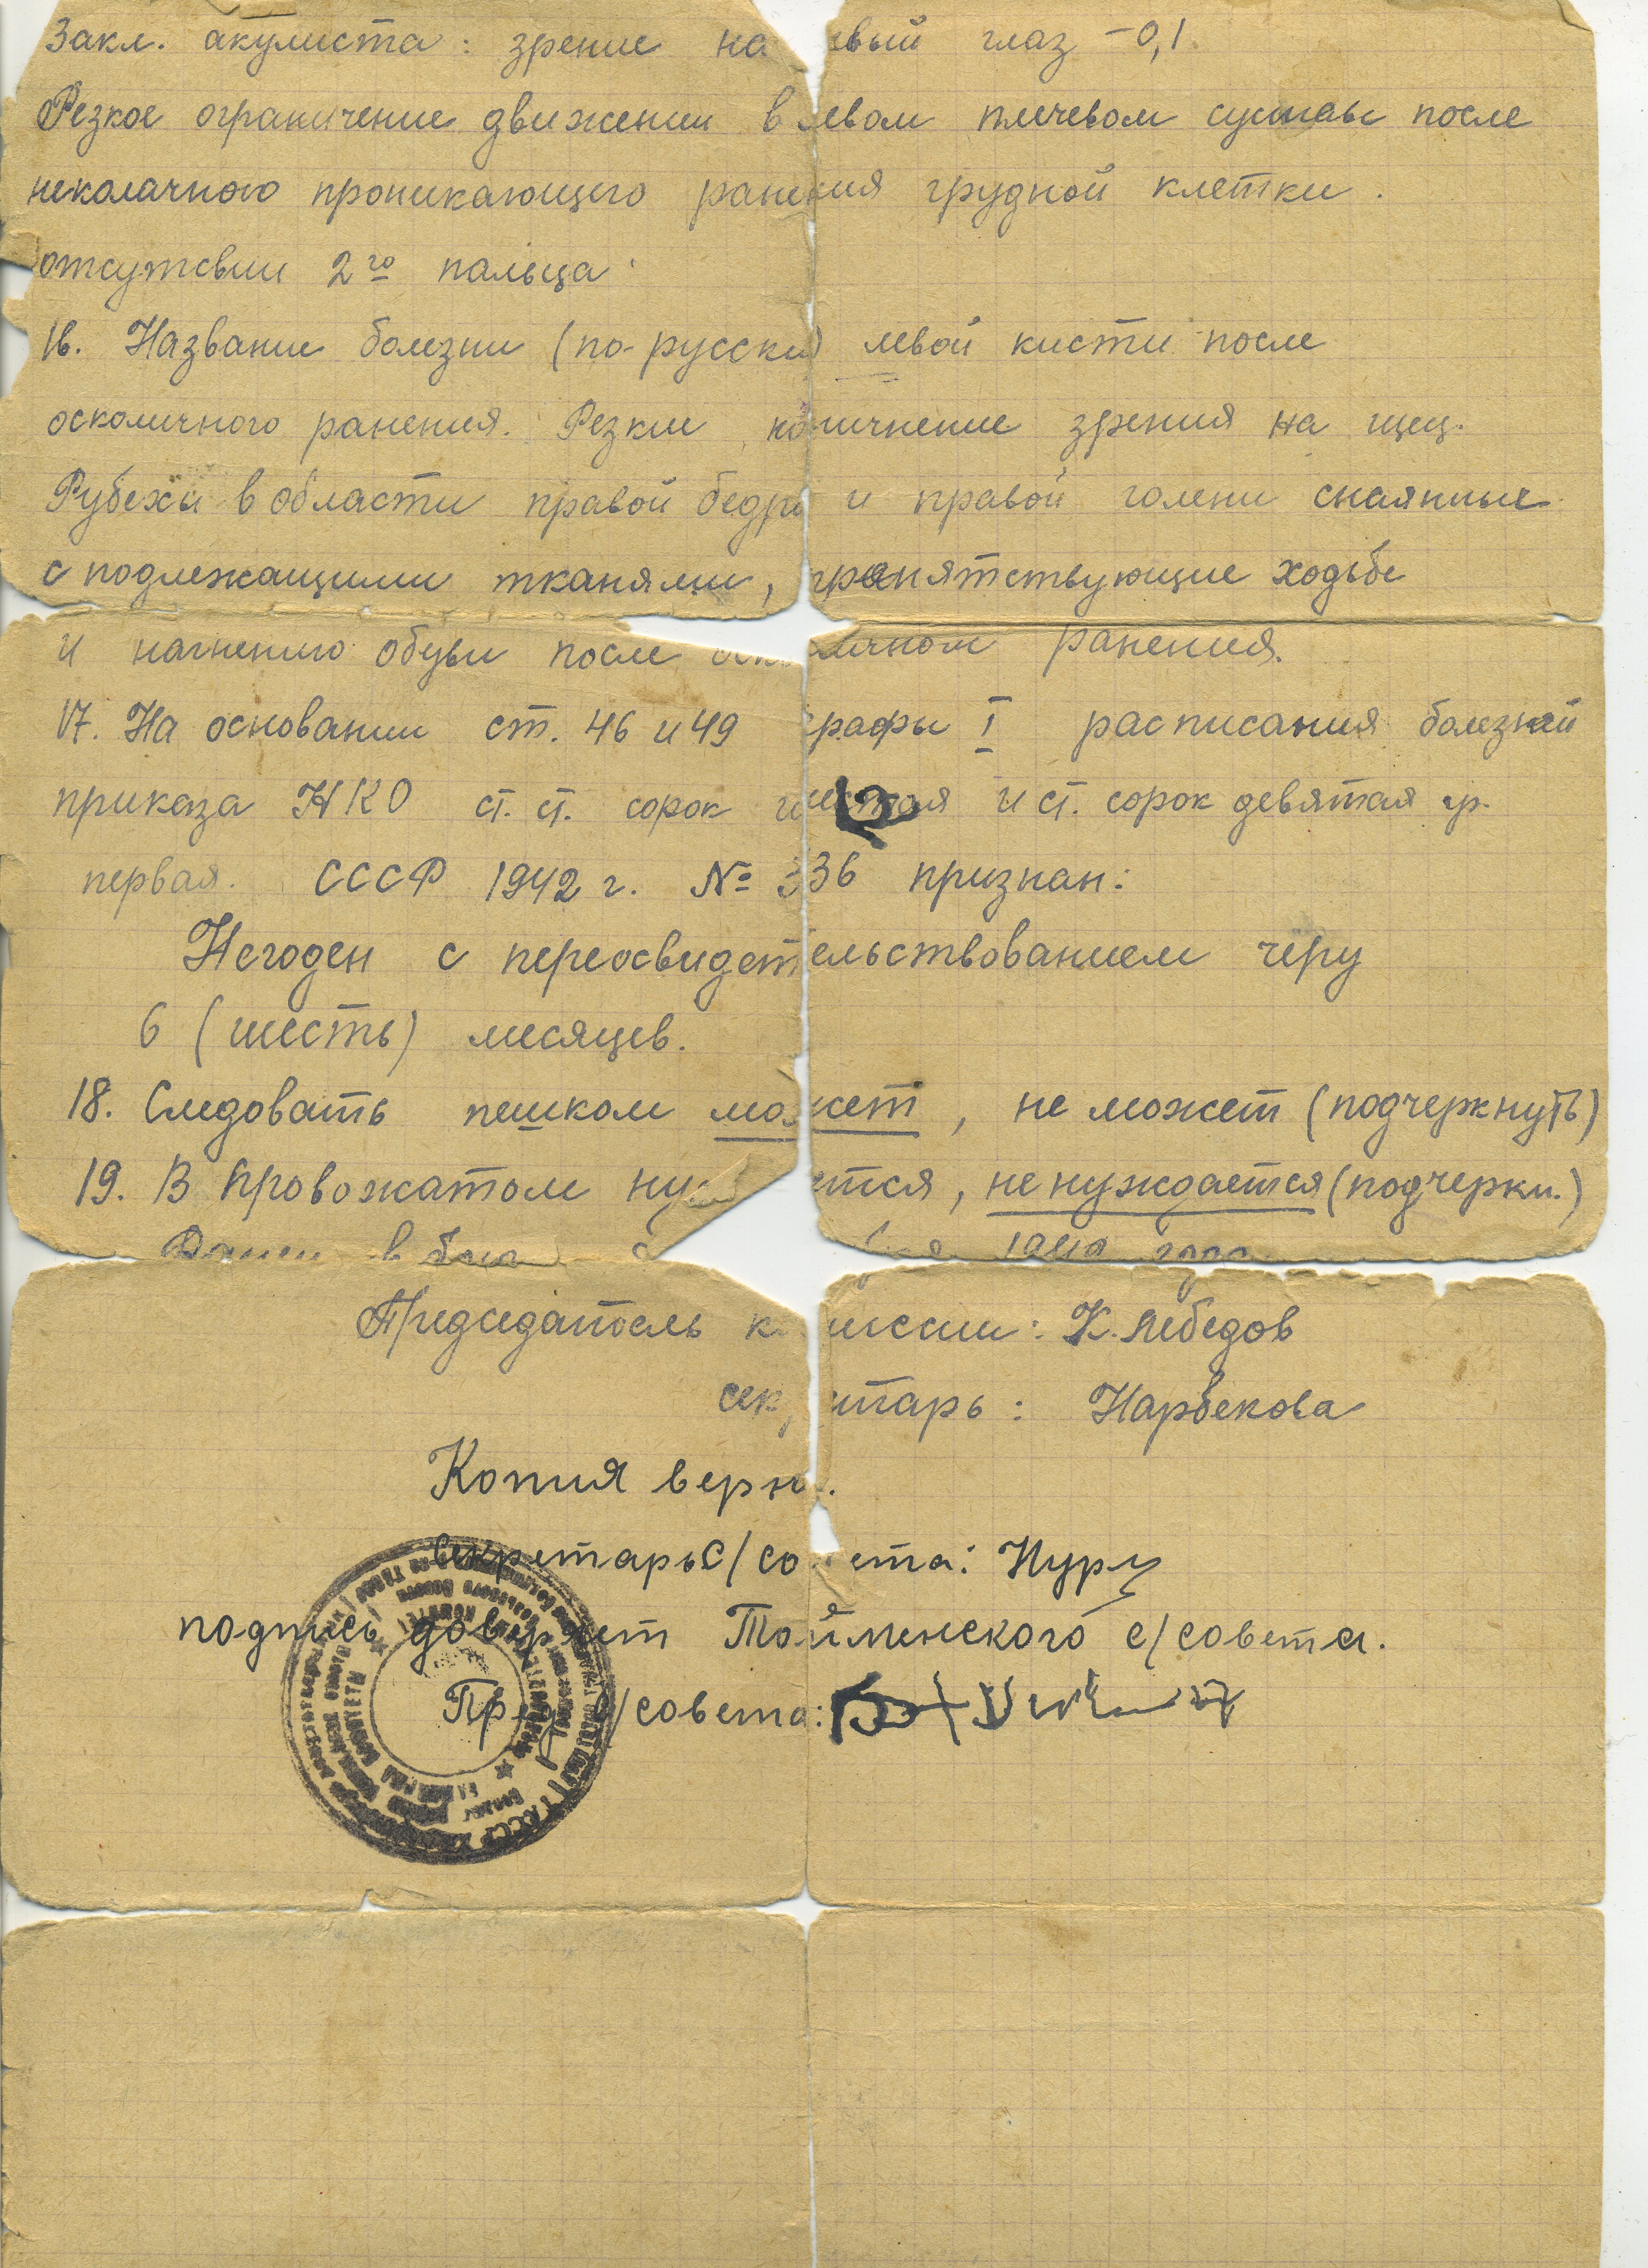 Закл. акулиста: зрение на евый глаз -0,1.
Резкое ограничение движении в левом плечевом суставе после
неколачного проникающего ранения грудной клетки.
отсутсвии 2го пальца
16. Название болезни (по-русски) левой кисти после
осколичного ранения. Резкие зрения на
Рубехи в области правой бедры и правой голени спаянные
с подлежащими тканями, препятствующие ходьбе
и обуви после ранения.
17. На основании ст. 46 и 49 графы I расписания болезней
приказа НКО ст. ст. сорок шестая и ст. сорок девятая гр.
первая. СССР 1942 г. № 336 признан:
Негоден с переосвидетельствованием черу
6 (шесть) месяцев.
18. Следовать пешком может, не может (подчеркнуть)
19. В провожатом нуждается, не нуждается (подчеркн.)
Председатель комиссии: К. Лебедов
секретарь: Нарбекова
Копия верна.
секретарь с/совета: Нуру
подпись доверяет Тойменского с/совета.
Пред с/совета: